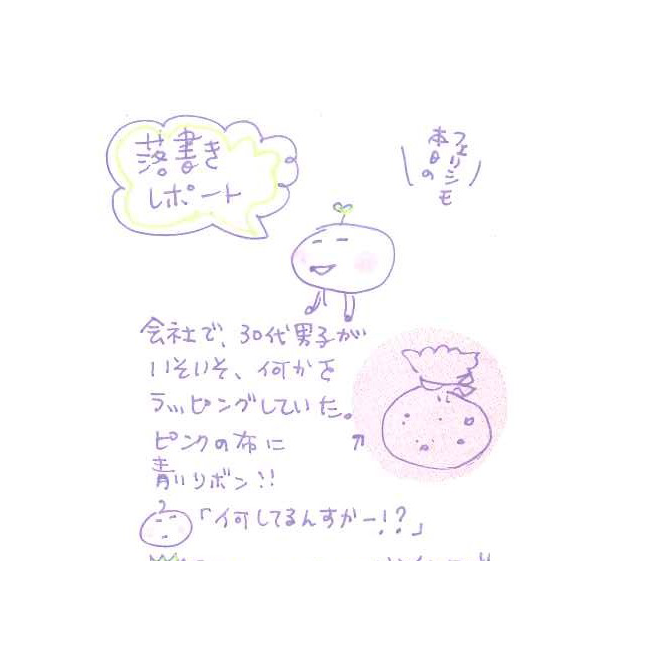 落書き
レポート
本日の
フェリシモ
会社で、30代男子が
いそいそ、何かを
ラッピングしていた。
ピンクの布に
青いリボン!!
「何してるんすかー!?」